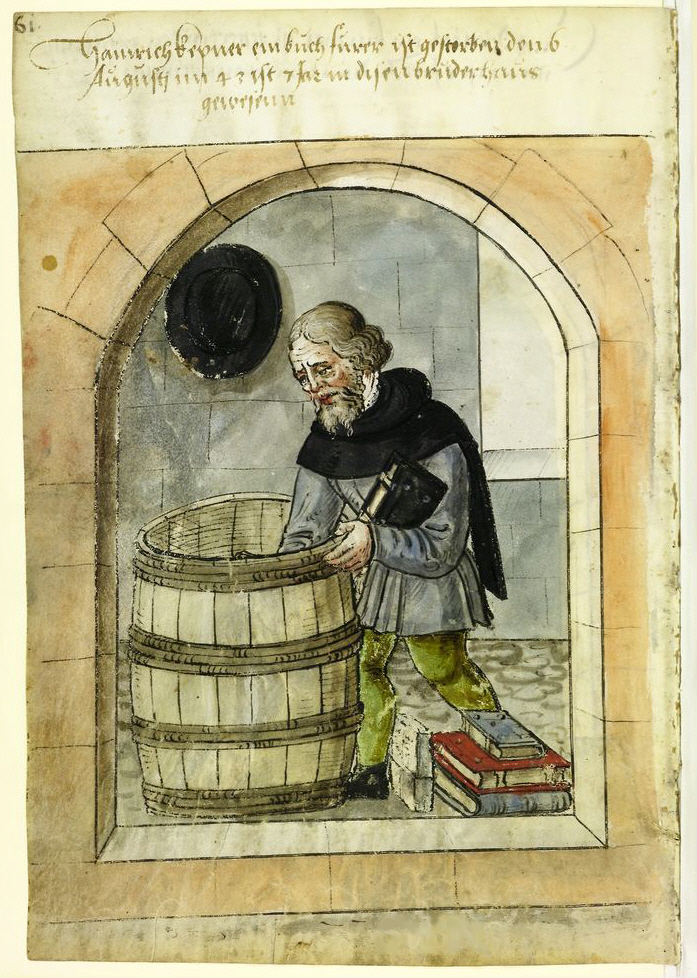 61
Hainrich kepner ein buch fürer ist gestorben den 6
Augustj im 42 ist 7 Jar in disen bruderhaus
gewesenn